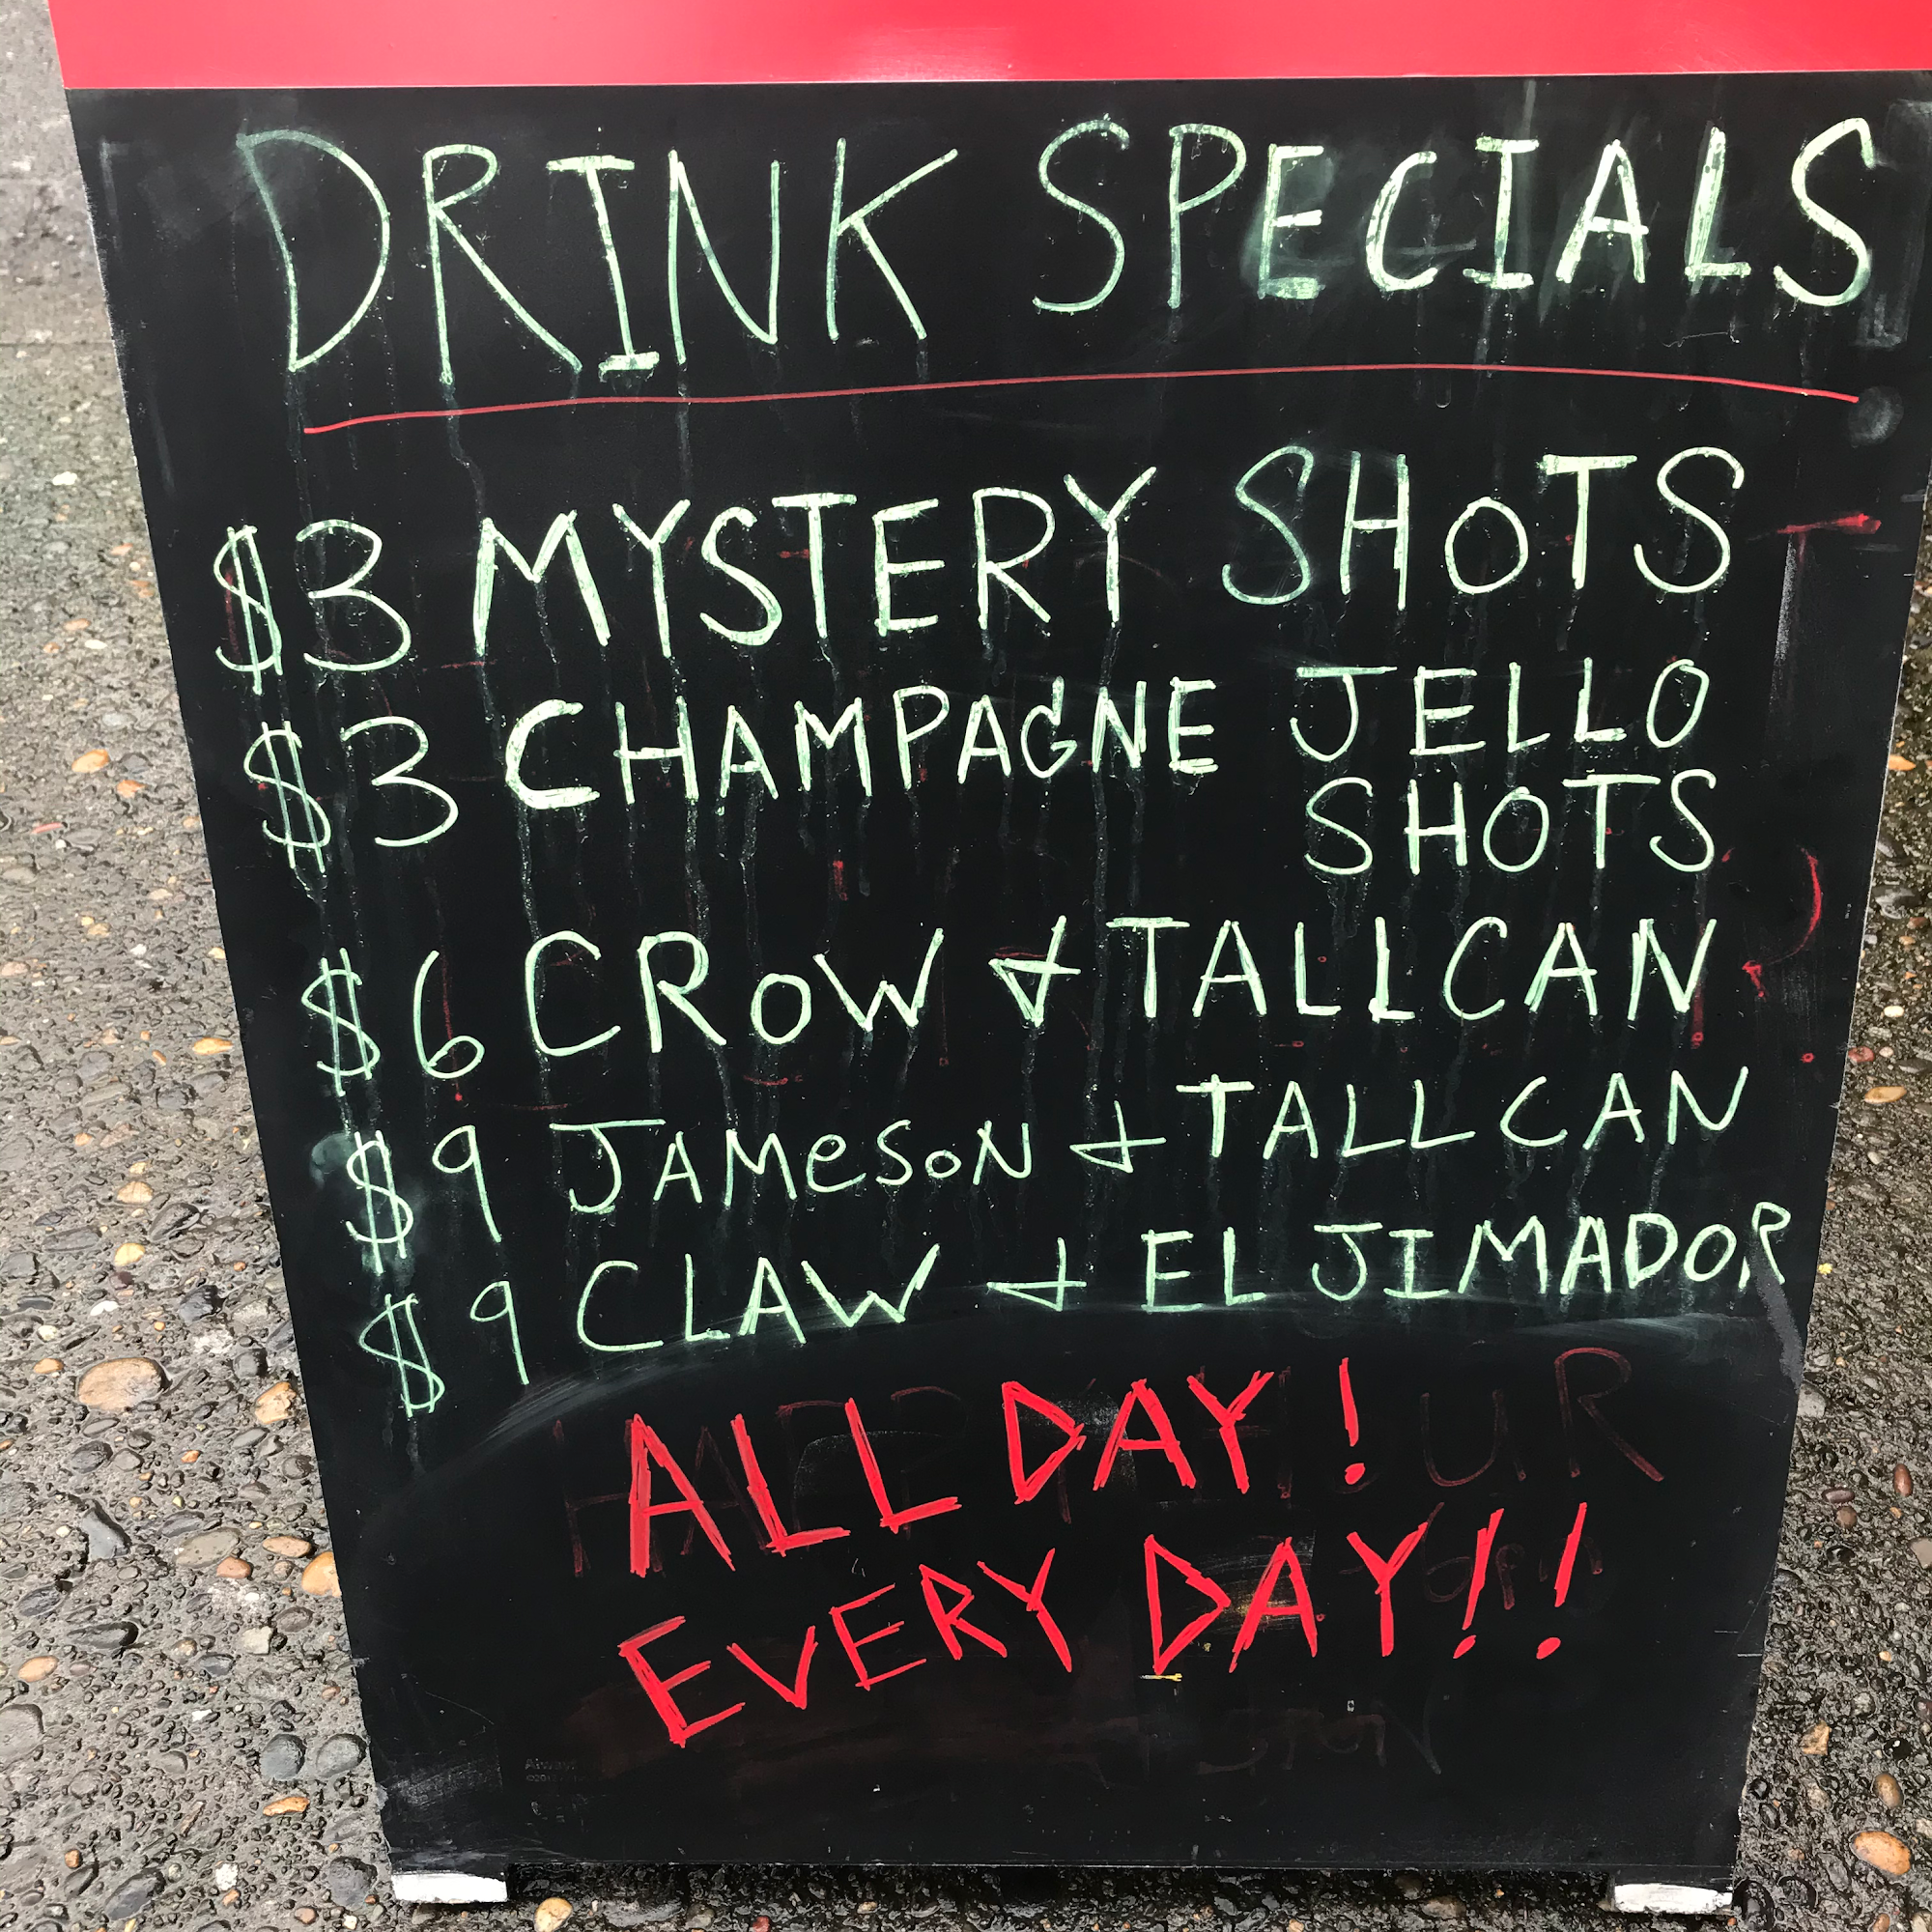 DRINK SPECIALS
$3 MYSTERY SHOTS
$3 CHAMPAGNE JELLO
SHOTS
$6 CROW + TALLCAN
$9 JAMeSON + TALLCAN
$9 CLAW + EL JIMADOR
ALL DAY!
EVERY DAY!!